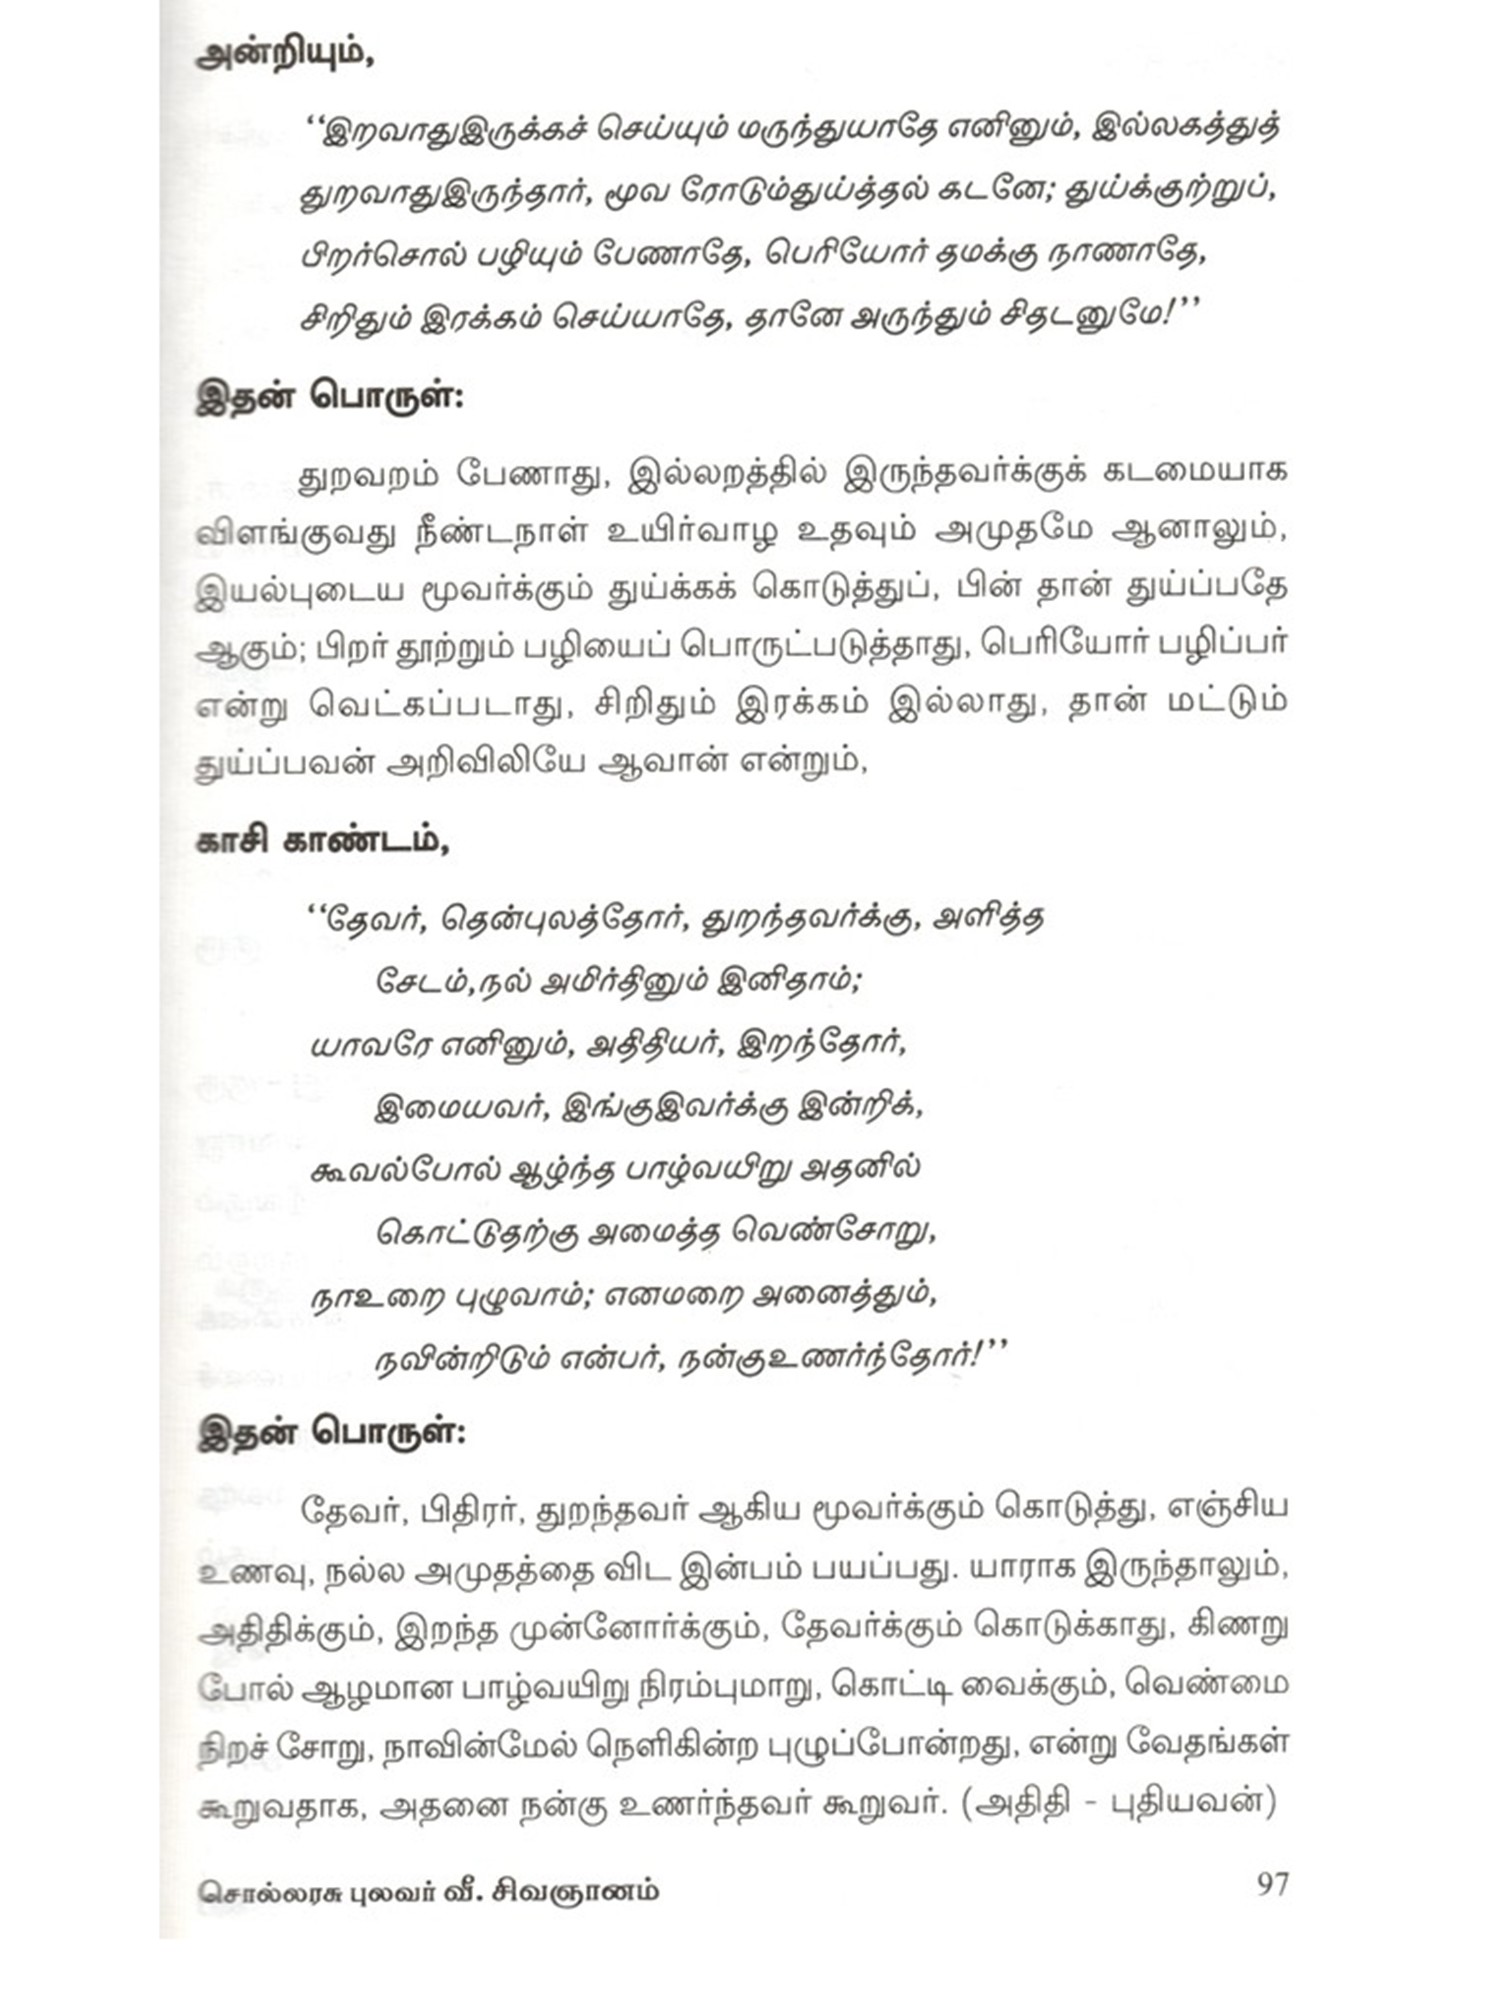 அன்றியும்,
‘‘இறவாதுஇருக்கச் செய்யும் மருந்துயாதே எனினும், இல்லகத்துத்
துறவாதுஇருந்தார், மூவ ரோடும்துய்த்தல் கடனே; துய்க்குற்றுப்,
பிறர்சொல் பழியும் பேணாதே, பெரியோர் தமக்கு நாணாதே,
சிறிதும் இரக்கம் செய்யாதே, தானே அருந்தும் சிதடனுமே!’’
இதன் பொருள்:
துறவறம் பேணாது, இல்லறத்தில் இருந்தவர்க்குக் கடமையாக
விளங்குவது நீண்டநாள் உயிர்வாழ உதவும் அமுதமே ஆனாலும்,
இயல்புடைய மூவர்க்கும் துய்க்கக் கொடுத்துப், பின் தான் துய்ப்பதே
ஆகும்; பிறர் தூற்றும் பழியைப் பொருட்படுத்தாது, பெரியோர் பழிப்பர்
என்று வெட்கப்படாது, சிறிதும் இரக்கம் இல்லாது, தான் மட்டும்
துய்ப்பவன் அறிவிலியே ஆவான் என்றும்,
காசி காண்டம்,
‘‘தேவர், தென்புலத்தோர், துறந்தவர்க்கு, அளித்த
சேடம்,நல் அமிர்தினும் இனிதாம்;
யாவரே எனினும், அதிதியர், இறந்தோர்,
இமையவர், இங்குஇவர்க்கு இன்றிக்,
கூவல்போல் ஆழ்ந்த பாழ்வயிறு அதனில்
கொட்டுதற்கு அமைத்த வெண்சோறு,
நாஉறை புழுவாம்; எனமறை அனைத்தும்,
நவின்றிடும் என்பர், நன்குஉணர்ந்தோர்!’’
இதன் பொருள்:
தேவர், பிதிரர், துறந்தவர் ஆகிய மூவர்க்கும் கொடுத்து, எஞ்சிய
உணவு, நல்ல அமுதத்தை விட இன்பம் பயப்பது. யாராக இருந்தாலும்,
அதிதிக்கும், இறந்த முன்னோர்க்கும், தேவர்க்கும் கொடுக்காது, கிணறு
போல் ஆழமான பாழ்வயிறு நிரம்புமாறு, கொட்டி வைக்கும், வெண்மை
நிறச் சோறு, நாவின்மேல் நெளிகின்ற புழுப்போன்றது, என்று வேதங்கள்
கூறுவதாக, அதனை நன்கு உணர்ந்தவர் கூறுவர். (அதிதி - புதியவன்)
சொல்லரசு புலவர் வீ. சிவஞானம் 97